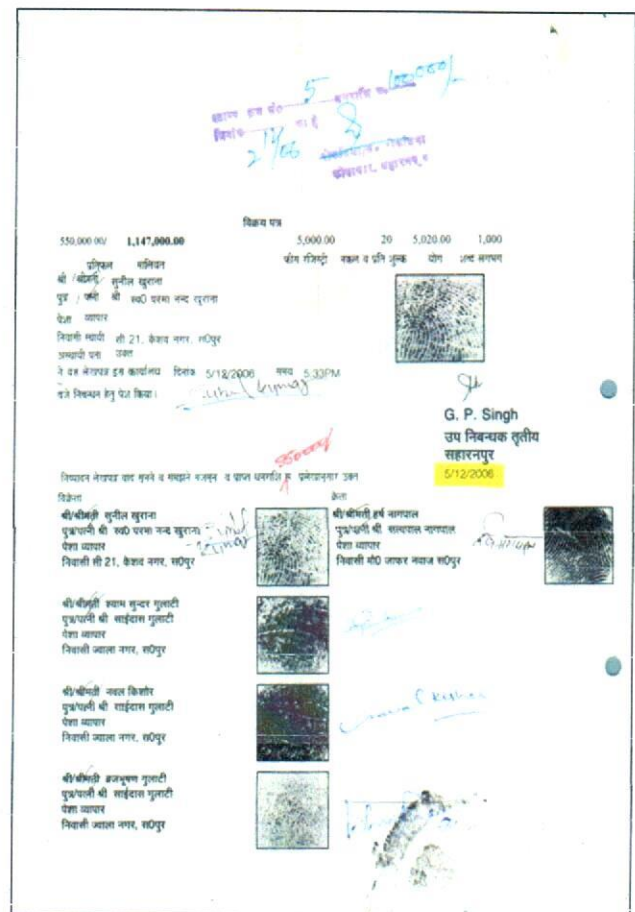 5
1000000/-
विक्रय पत्र
550,000.00/ 1,147,000.00 5,000.00 20 5,020.00 1,000
प्रतिफल मालियत फीस रजिस्ट्री नकल व प्रति शुल्क योग शब्द लगभग
श्री/श्रीमती सुनील खुराना
पुत्र / पत्नी श्री स्व0 परमा नन्द खुराना
पेशा व्यापार
निवासी स्थायी सी 21, केशव नगर, स0पुर
अस्थायी पता उक्त
ने यह लेखपत्र इस कार्यालय दिनांक 5/12/2006 समय 5:33PM
बजे निबन्धन हेतु पेश किया।
G. P. Singh
उप निबन्धक तृतीय
सहारनपुर
5/12/2006
निष्पादन लेखपत्र वाद सुनने व समझने मजमून व प्राप्त धनराशि रू प्रलेखानुसार उक्त
विक्रेता क्रेता
श्री/श्रीमती सुनील खुराना
पुत्र/पत्नी श्री स्व0 परमा नन्द खुराना
पेशा व्यापार
निवासी सी 21, केशव नगर, स0पुर
श्री/श्रीमती हर्ष नागपाल
पुत्र/पत्नी श्री सत्यपाल नागपाल
पेशा व्यापार
निवासी मो0 जाफर नवाज स0पुर
श्री/श्रीमती श्याम सुन्दर गुलाटी
पुत्र/पत्नी श्री साईदास गुलाटी
पेशा व्यापार
निवासी ज्वाला नगर, स0पुर
श्री/श्रीमती नवल किशोर
पुत्र/पत्नी श्री साईदास गुलाटी
पेशा व्यापार
निवासी ज्वाला नगर, स0पुर
श्री/श्रीमती ब्रजभूषण गुलाटी
पुत्र/पत्नी श्री साईदास गुलाटी
पेशा व्यापार
निवासी ज्वाला नगर, स0पुर